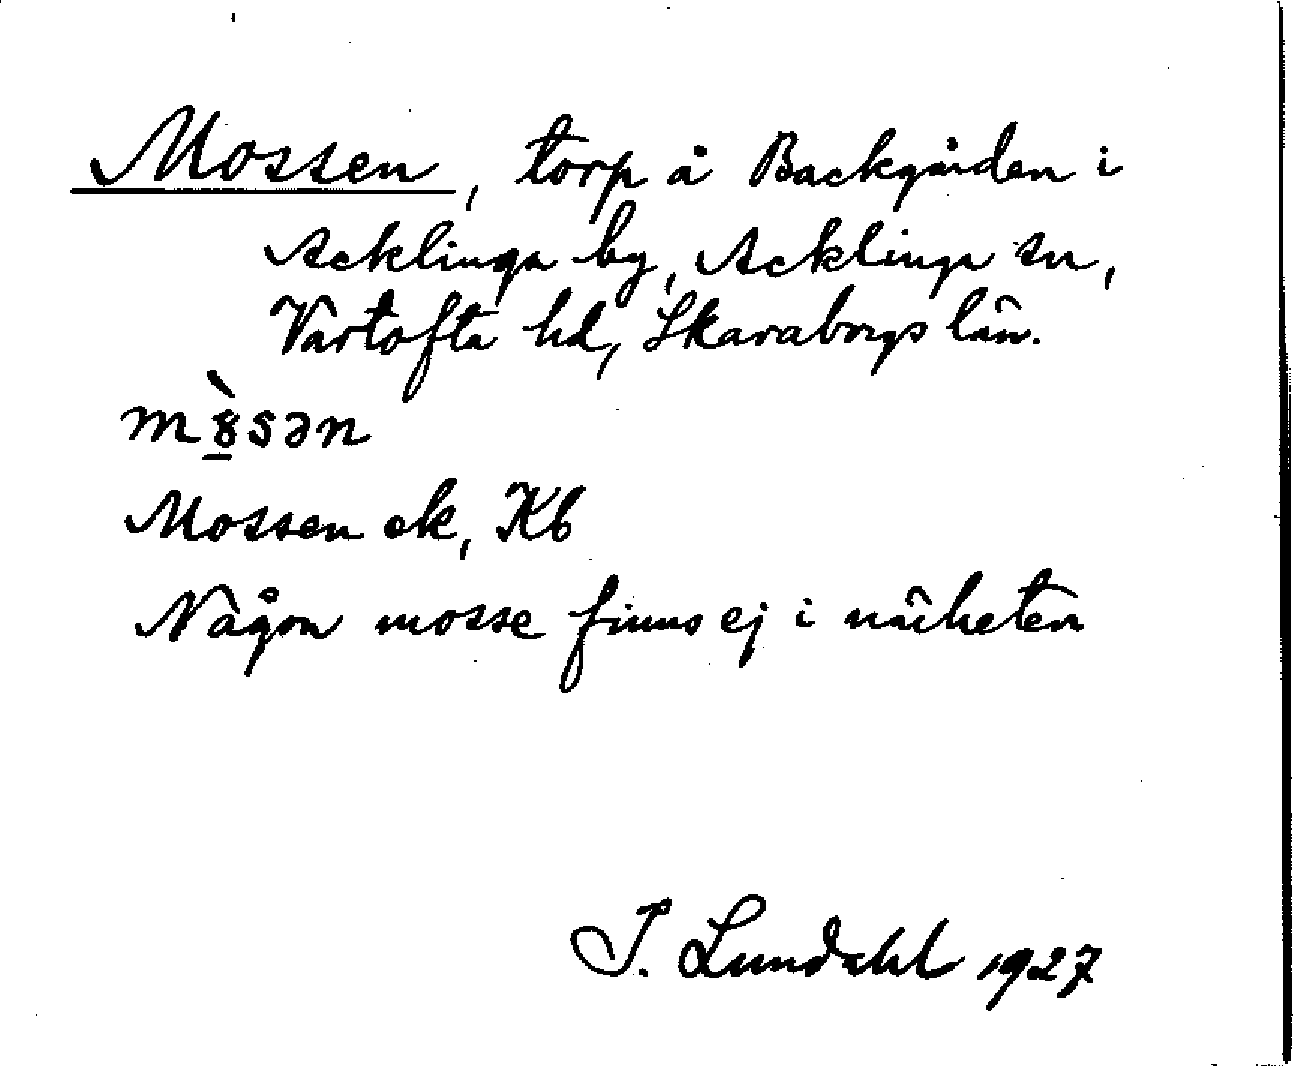 Mossen, torp å Backgården i
Acklinga by, Acklinga sn,
Vartofta hd, Skaraborgs län.
m8̱̀sən
Mossen ek, Kb
Någon mosse finns ej i närheten
I. Lundahl 1927